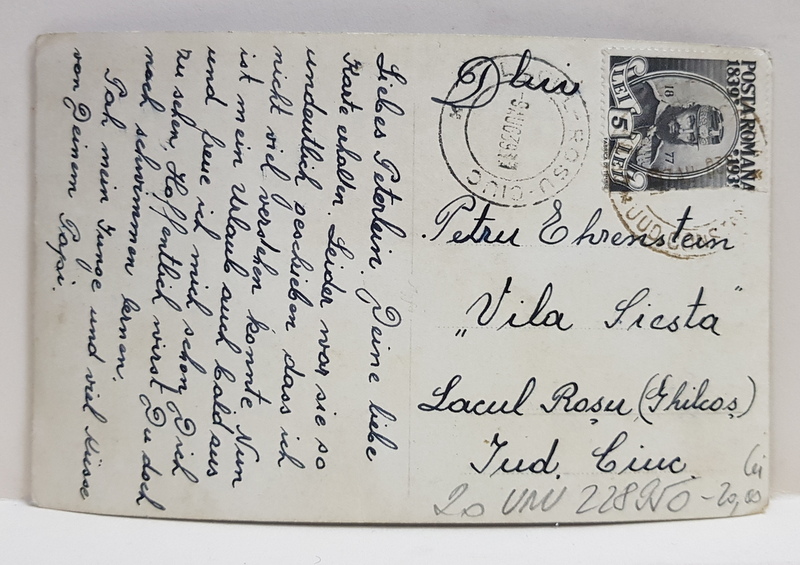 Liebes Peterlein. Deine liebe
Karte erhalten. Leider war sie so
undeutlich geschrieben dass ich
nicht viel verstehen konnte. Nun
ist mein Urlaub auch bald aus
und freue ich mich schon Dich
zu sehen, Hoffentlich wirst Du doch
noch schwimmen lernen.
Pah mein Junge und viel Küsse
von Deinem Papi.
Dlui
Petru Ehrenstein
"Vila Siesta"
Lacul Roşu (Ghilcoş)
Jud. Ciuc.
POSTA ROMANA
1839
LEI 5 LEI
18 77
ROSU-CIUC
lei
20 228950 - 20,00